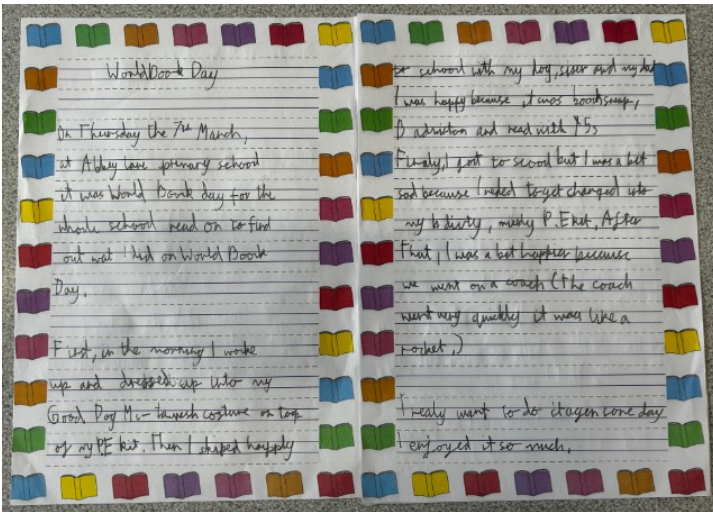 World Book Day
On Thursday the 7th March,
at Abbey Lane primary school
it was World Book day for the
whole school read on to find
out wat I did on World Book
Day.
First, in the morning I woke
up and dressed up into my
Good Dog Mc-tavish costume on top
of my PE kit. Then I skiped happyly
to school with my dog, sister and my dad
I was happy because it was bookswap,
and read with Y5s
Finaly, I got to scool but I was a bit
sad because I neded to get changed into
my dirty, P.E kit, After
That, I was a bit happier because
we went on a coach (the coach
went very quickly it was like a
rocket.)
I realy want to do it agen some day
I enjoyed it so much.